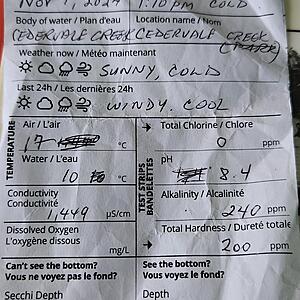 Nov 1, 2024 1:10 pm COLD
Body of water / Plan d'eau Location name / Nom
CEDERVALE CREEK CEDERVALE CREEK
(PARK)
Weather now / Météo maintenant
SUNNY, COLD
Last 24h / Les dernières 24h
WINDY. COOL
TEMPERATURE
Air / L'air
17 °C
Water / L'eau
10 °C
Conductivity
Conductivité
1,449 µS/cm
Dissolved Oxygen
L'oxygène dissous
mg/L
TEST STRIPS
BANDELETTES
Total Chlorine / Chlore
0 ppm
pH
8.4
Alkalinity / Alcalinité
240 ppm
Total Hardness / Dureté totale
200 ppm
Can't see the bottom?
Vous ne voyez pas le fond?
Secchi Depth
See the bottom?
Vous voyez le fond?
Depth